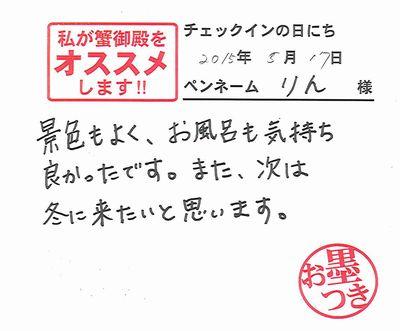 私が蟹御殿を
オススメ
します!!
チェックインの日にち
2015年 8月 17日
ペンネーム りん 様
景色もよく、お風呂も気持ち
良かったです。また、次は
冬に来たいと思います。
お墨
つき